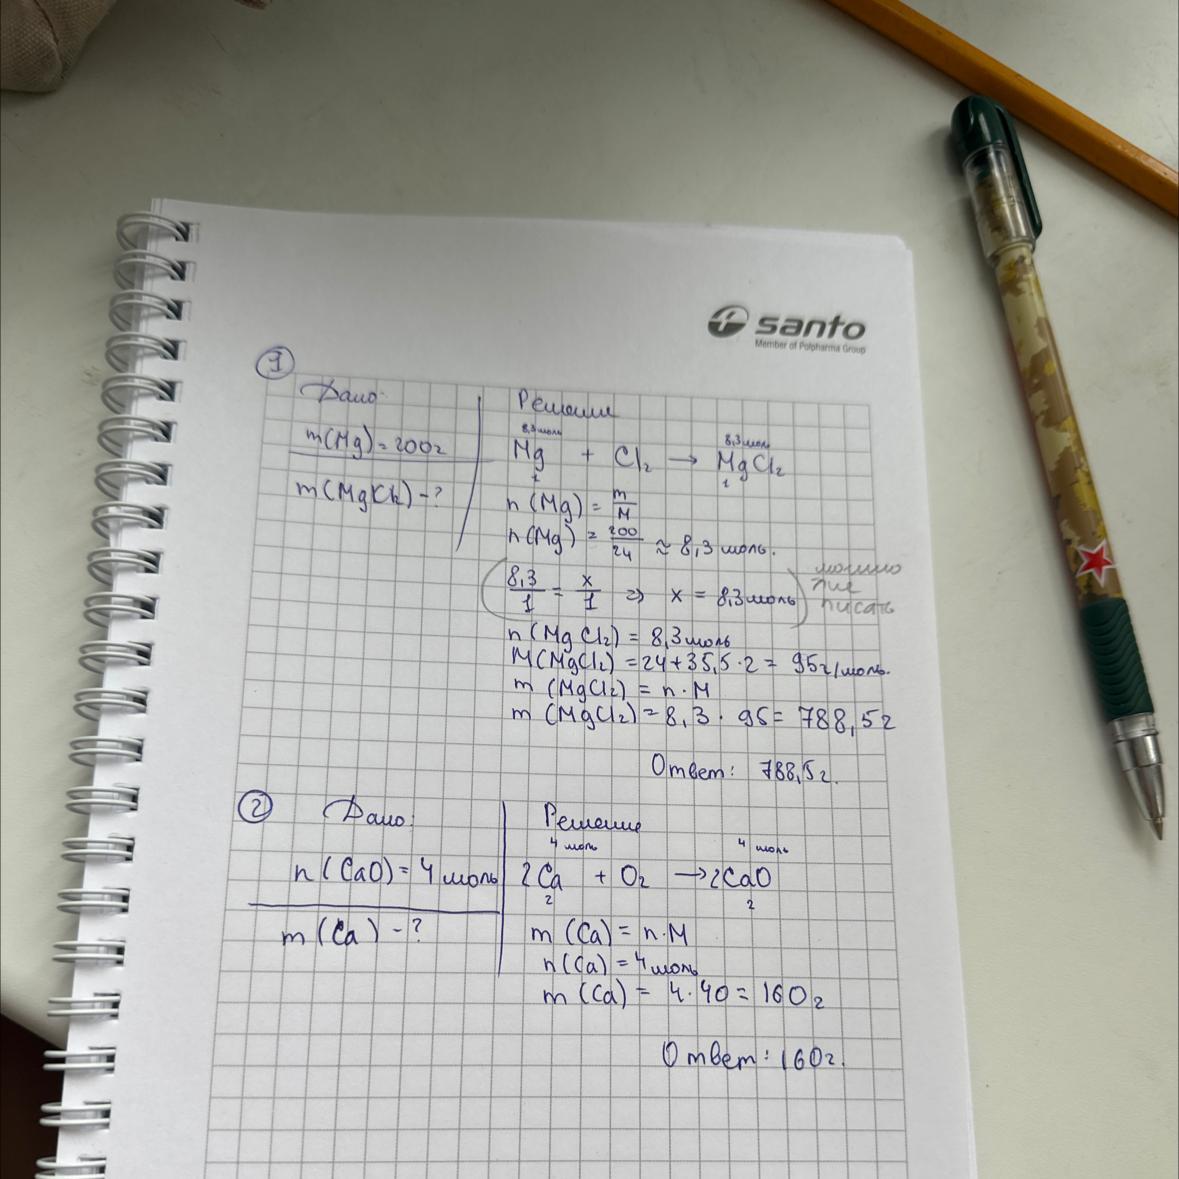 santo
Member of Polpharma Group
1
Дано:
m(Mg) = 200г
m(MgCl₂) - ?
Решение
8,3 моль 8,3 моль
Mg + Cl₂ → MgCl₂
1 1
n(Mg) = m/M
n(Mg) = 200/24 ≈ 8,3 моль.
(8,3/1 = x/1 ⇒ x = 8,3 моль) можно не писать
n(MgCl₂) = 8,3 моль
M(MgCl₂) = 24 + 35,5 · 2 = 95г/моль.
m(MgCl₂) = n · M
m(MgCl₂) = 8,3 · 95 = 788,5г
Ответ: 788,5г.
2
Дано:
n(CaO) = 4 моль
m(Ca) - ?
Решение
4 моль 4 моль
2Ca + O₂ → 2CaO
2 2
m(Ca) = n · M
n(Ca) = 4 моль
m(Ca) = 4 · 40 = 160г
Ответ: 160г.